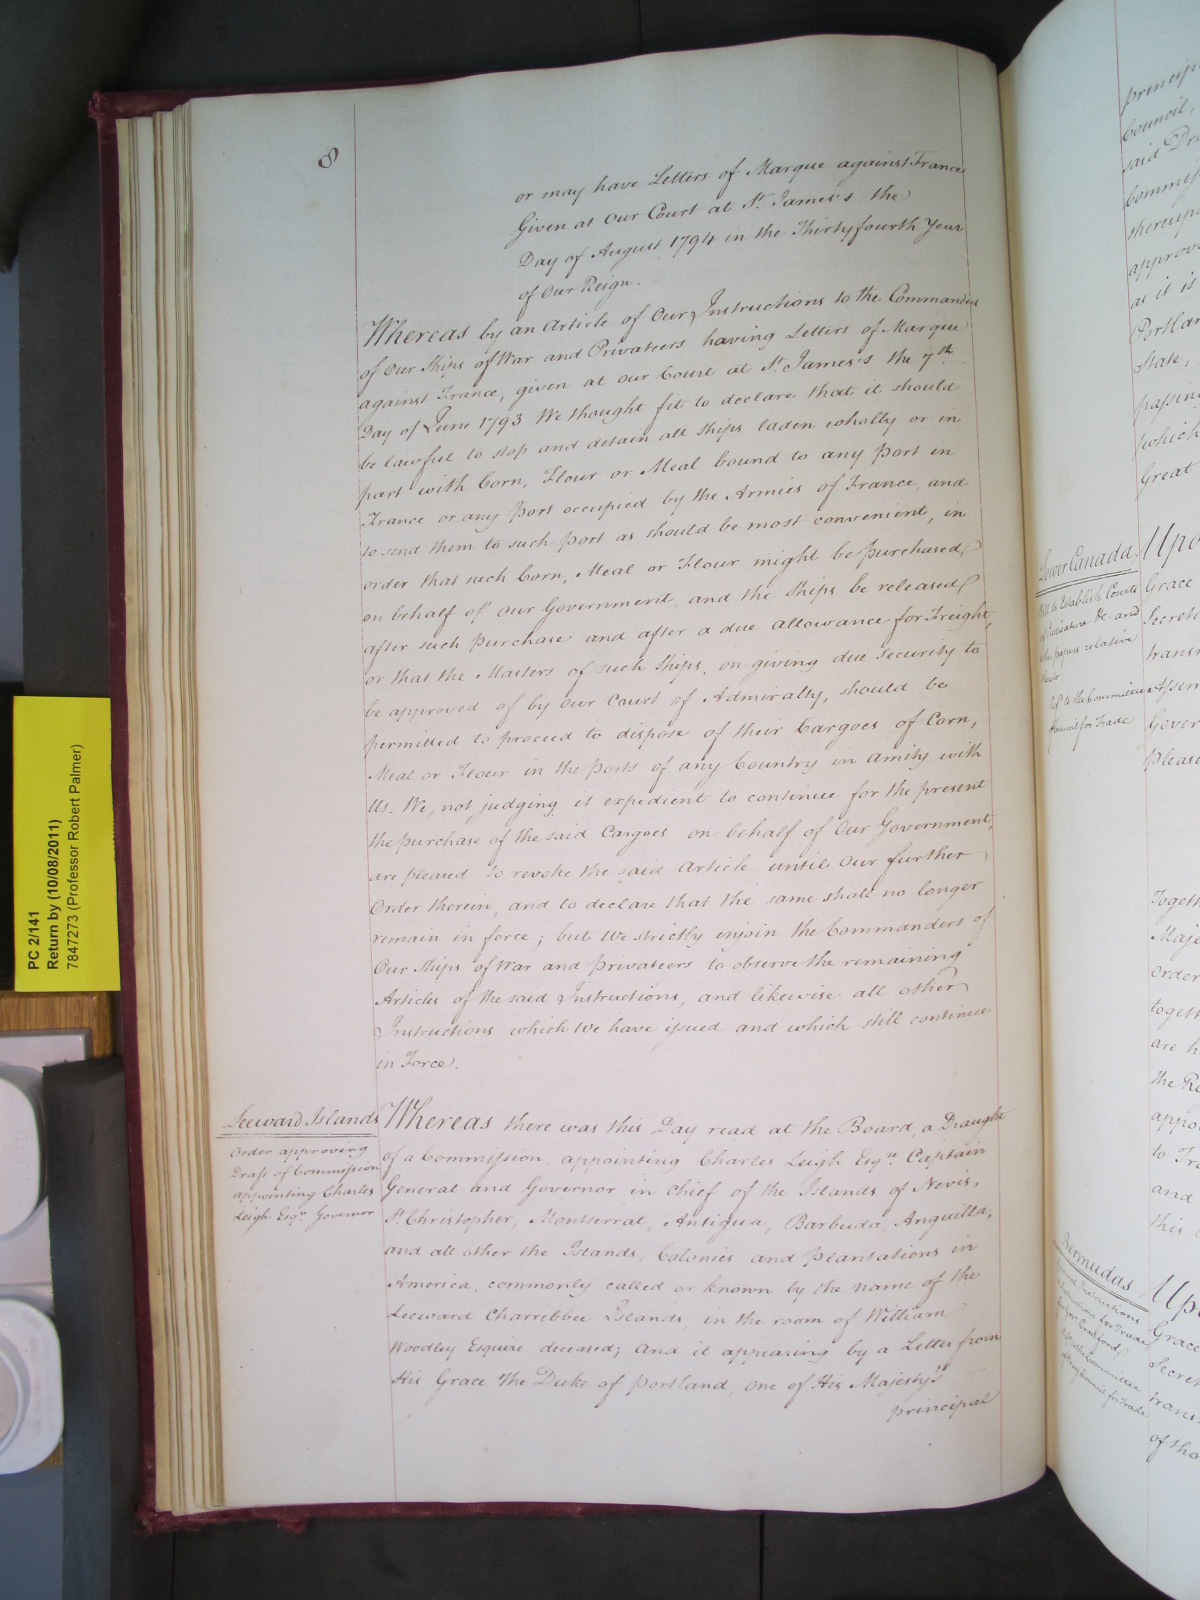 8
or may have Letters of Marque against France
Given at Our Court at St. James's the
Day of August 1794 in the Thirty fourth Year
of Our Reign.
Whereas by an Article of Our Instructions to the Commanders
of Our Ships of War and Privateers having Letters of Marque
against France, given at our Court at St. James's the 7th
Day of June 1793 We thought fit to declare that it should
be lawful to stop and detain all Ships laden wholly or in
part with Corn, Flour or Meal bound to any Port in
France or any Port occupied by the Armies of France, and
to send them to such Port as should be most convenient, in
order that such Corn, Meal or Flour might be purchased
on behalf of our Government and the Ships be released
after such purchase and after a due allowance for Freight,
or that the Masters of such Ships, on giving due security to
be approved of by our Court of Admiralty, should be
permitted to proceed to dispose of their Cargoes of Corn,
Meal or Flour in the Ports of any Country in Amity with
Us. We, not judging it expedient to continue for the present
the purchase of the said Cargoes on behalf of Our Government,
are pleased to revoke the said Article until Our further
Order therein, and to declare that the same shall no longer
remain in force; but We strictly enjoin the Commanders of
Our Ships of War and Privateers to observe the remaining
Articles of the said Instructions, and likewise all other
Instructions which We have issued and which still continue
in Force.
Leeward Islands
Order approving
Draft of Commission
appointing Charles
Leigh Esqr. Governor
Whereas there was this Day read at the Board, a Draught
of a Commission, appointing Charles Leigh Esqr. Captain
General and Governor in Chief of the Islands of Nevis,
St. Christopher, Montserrat, Antigua, Barbuda, Anguilla,
and all other the Islands, Colonies and Plantations in
America, commonly called or known by the name of the
Leeward Charribbee Islands, in the room of William
Woodley Esquire deceased; And it appearing by a Letter from
His Grace The Duke of Portland, one of His Majesty's
principal
PC 2/141
Return by (10/08/2011)
7847273 (Professor Robert Palmer)
princip
Council,
said Dr
Commiss
thereup
approv
as it is
Portlan
State,
passin
which
Great
Lower Canada
Bill to Establish Courts
of Judicature &c. and
other papers relative
Ref. to the Committee
Council for Trade
Upo
Grace
Secret
trans
Assem
Gover
pleas
Togeth
Maje
order
togeth
are h
the Re
appo
to Tra
and
this
Bermudas
Instructions
for Trade
Craufurd
the Committee
Council for Trade
Upo
Grace
Secret
trans
of tho